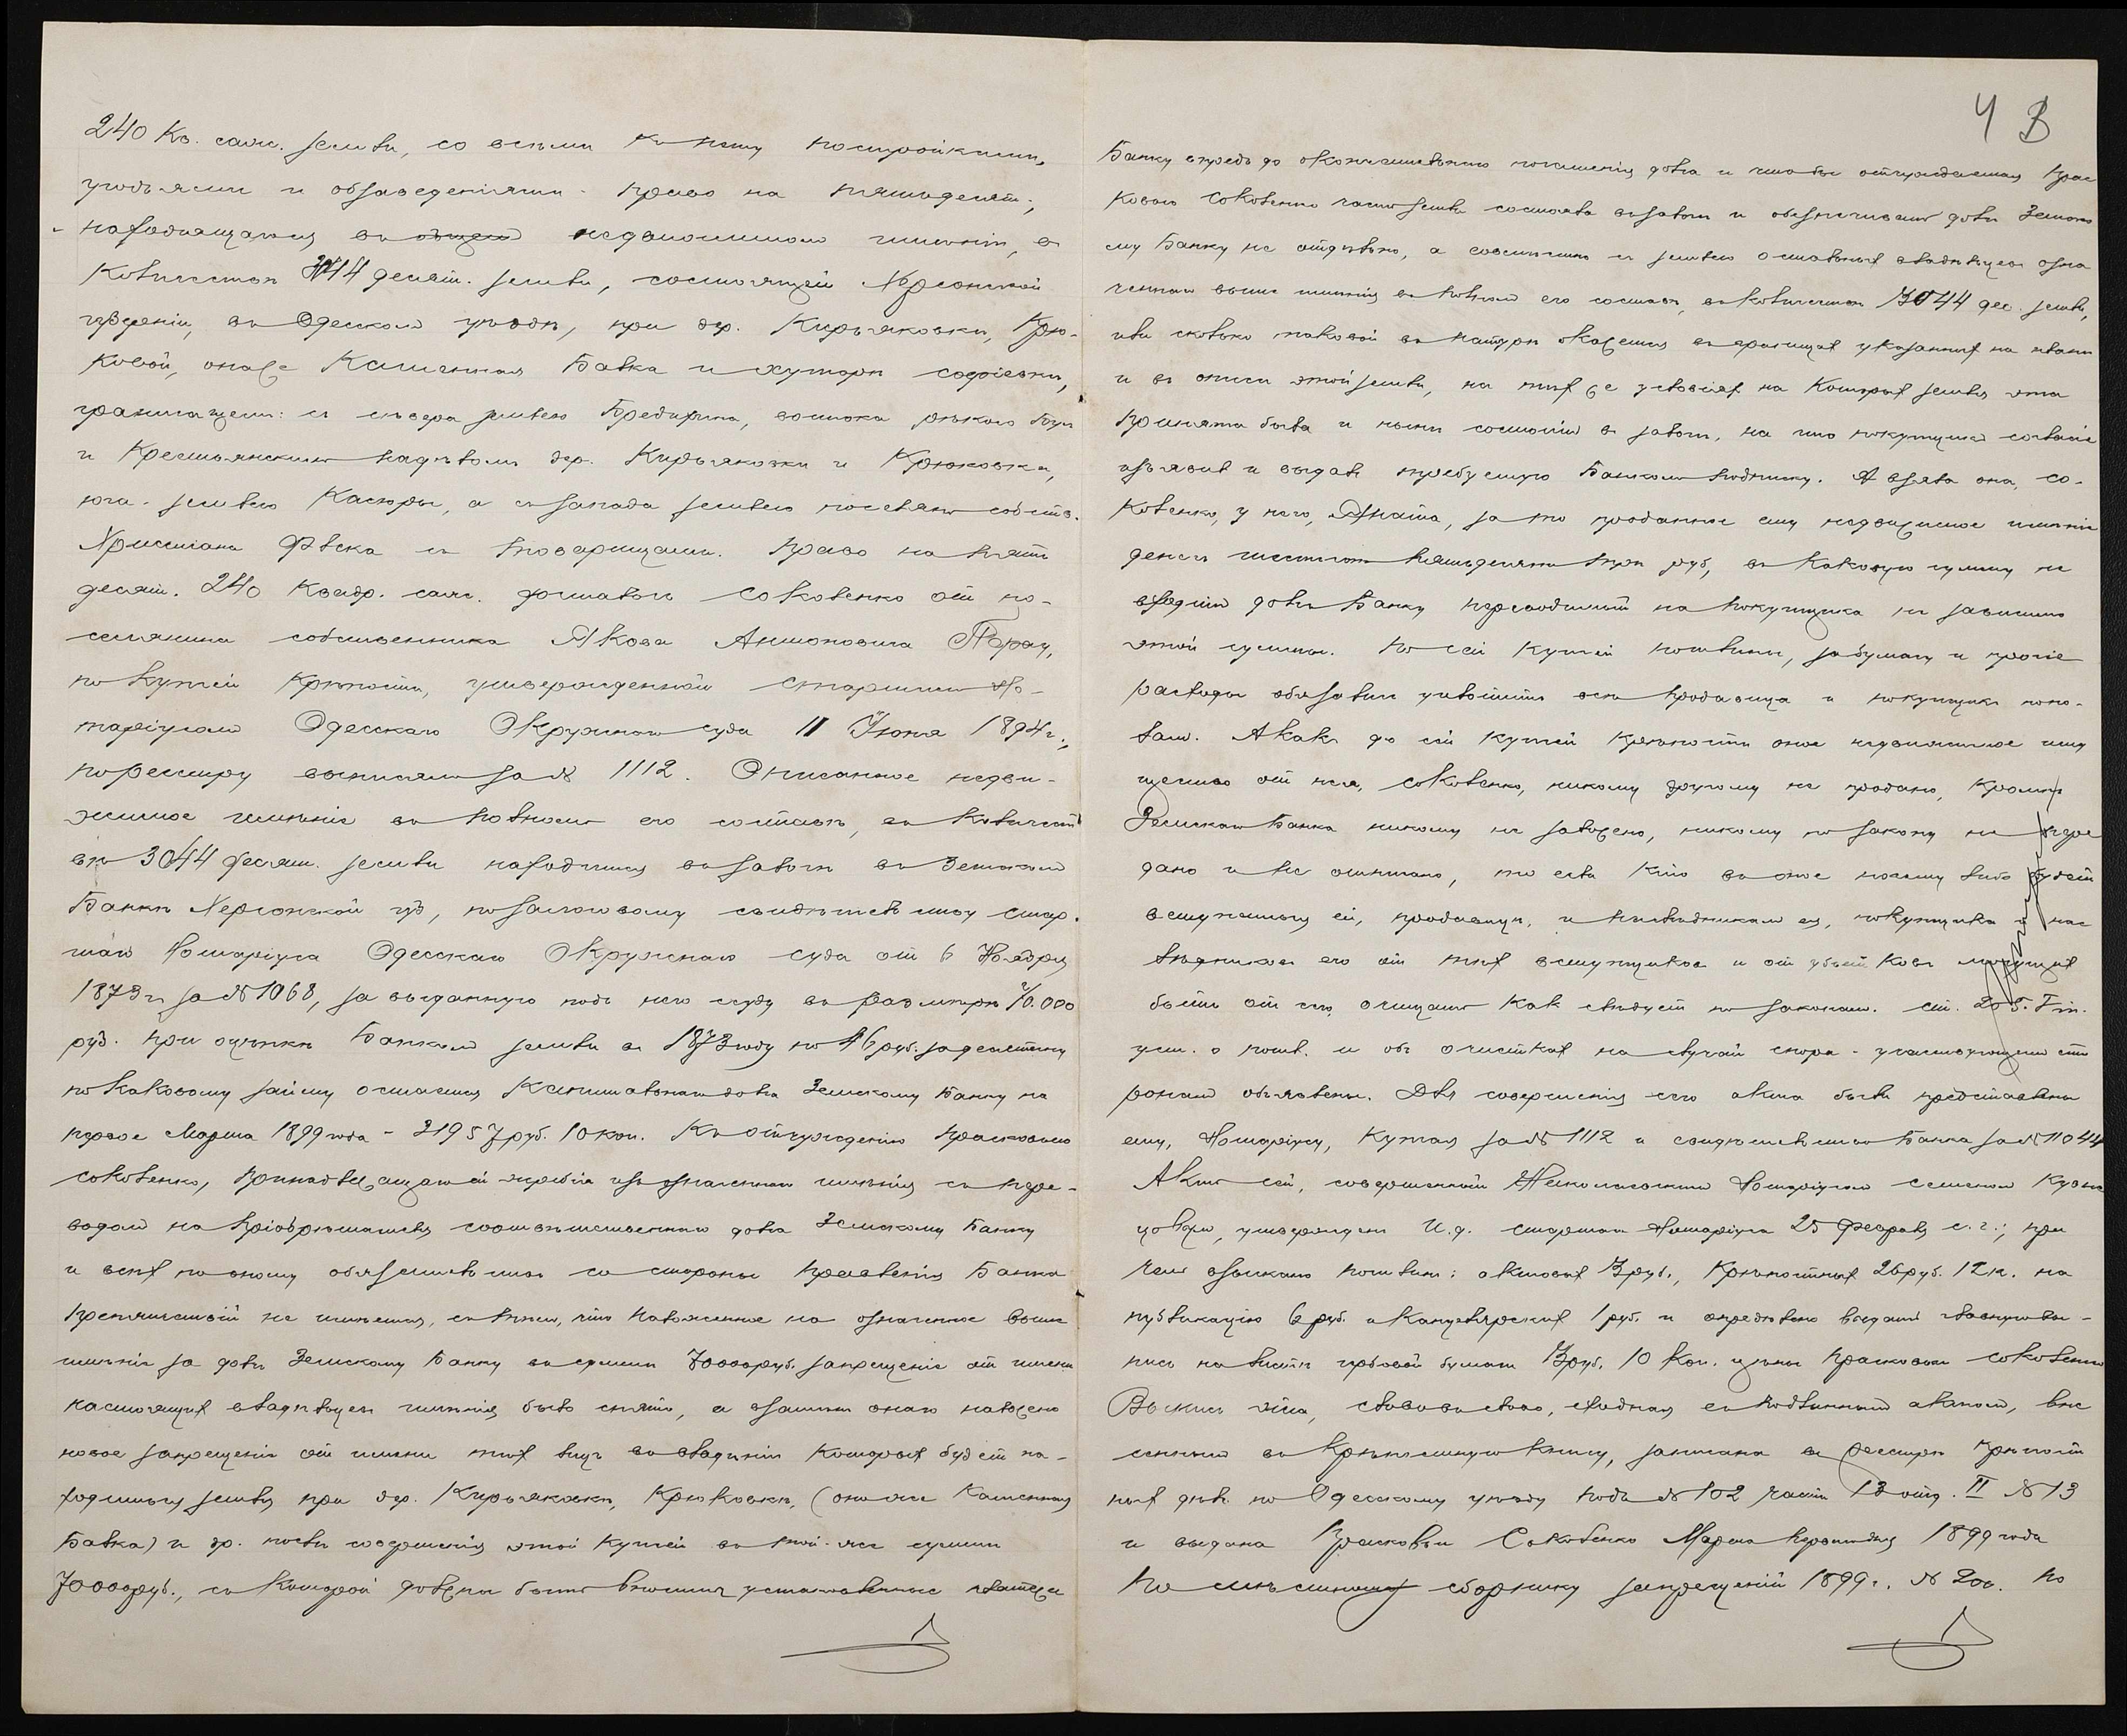 240 кв. саж. земли, со всѣми къ нему постройками,
угодьями и обзаведеніями. Право на пятьдесят.,
находящагося въ общемъ недвижимомъ имѣніи, въ
количествѣ 3044 десят. земли, состоящей Херсонской
губерніи, въ Одесскомъ уѣздѣ, при дер. Кирьяковки, Крю-
ковой, она же Каменная Балка и хуторѣ Софіевки,
граничащемъ: съ сѣвера землею Бредихина, востока рѣкою Бугъ
и Крестьянскимъ надѣломъ дер. Кирьяковки и Крюковки,
юга - землею Касюры, а съ запада землею поселянъ собств.
Христіана Флека съ товарищами. Право на пять
десят. 240 квадр. саж. досталось Соковенко отъ по-
селянина собственника Якова Антоновича
по купчей крѣпости, утвержденной Старшимъ Но-
таріусомъ Одесскаго Окружнаго суда 11 Іюня 1894 г.,
по реестру выписямъ за № 1112. Описанное недви-
жимое имѣніе въ полномъ его составѣ, въ количест
вѣ 3044 десят. земли находится въ залогѣ въ Земскомъ
Банкѣ Херсонской губ., по залоговому свидѣтельству Стар.
шаго Нотаріуса Одесскаго Окружнаго суда отъ 6 Ноября
1873 г. за № 1068, за выданную подъ него ссуду въ размѣрѣ 70.000
руб. при оцѣнкѣ Банкомъ земли въ 1873 году по 46 руб. за десятину
по каковому займу остается капитальнаго долга Земскому Банку на
первое Марта 1899 года - 21957 руб. 10 коп. Къ отчужденію Прасковьею
Соковенко, принадлежащей ей жеребія изъ означеннаго имѣнія съ пере-
водомъ на пріобрѣтателя соотвѣтственнаго долга Земскому Банку
и всѣхъ по оному обязательствъ со стороны Правленія Банка
препятствій не имѣется, съ тѣмъ, что наложенное на означенное выше
имѣніе за долгъ Земскому Банку въ суммѣ 70000 руб. запрещеніе отъ имени
настоящихъ владѣльцевъ имѣнія было снято, а взамѣнъ онаго наложено
новое запрещеніе отъ имени тѣхъ лицъ во владѣніи которыхъ будетъ на-
ходиться земля при дер. Кирьяковки, Крюковки, (она же Каменная
Балка) и др. послѣ совершенія этой купчей въ той-же суммѣ
70000 руб., съ которой должны быть вносимы установленные платежи
4 В
Банку впредь до окончательнаго погашенія долга и чтобы отчуждаемая Прас
ковьею Соковенко часть земли состояла въ залогѣ и обезпечивала долгъ Земско
му Банку не отдѣльно, а совмѣстно съ землею остальныхъ владѣльцевъ озна
ченнаго выше имѣнія въ полномъ его составѣ, въ количествѣ 3044 дес. земли,
или сколько таковой въ натурѣ окажется въ границахъ указанныхъ на планѣ
и въ описи этой земли, на тѣхъ же условіяхъ на которыхъ земля эта
принята была и нынѣ состоитъ въ залогѣ, на что покупщикъ согласіе
изъявилъ и выдалъ требуемую Банкомъ подписку. А взяла она, Со-
ковенко, у него, за то проданное ему недвижимое имѣніе
денегъ шестьсотъ пятьдесятъ три руб., въ каковую сумму не
входитъ долгъ Банку переводимый на покупщика не зависимо
этой суммы. По сей купчей пошлины, за бумагу и прочіе
расходы обязались уплатить всѣ продавица и покупщикъ попо-
ламъ. А какъ до сей купчей крѣпости оное недвижимое иму
щество отъ нея, Соковенко, никому другому не продано, кромѣ
Земскаго Банка никому не заложено, никому по закону не пере
дано и не отписано, то если кто въ оное почему либо будетъ
вступаться ей, продавицѣ, и наслѣдникамъ ея, покупщика и нас
лѣдниковъ его отъ тѣхъ вступщиковъ и отъ убытковъ могущихъ
быть отъ чего очищать какъ слѣдуетъ по законамъ. Ст. 205. V т.
уст. о пошл. и объ очисткахъ на случай спора - участвующимъ сто
ронамъ объявлены. Для совершенія сего акта были представлены
ему, Нотаріусу, купчая за № 1112 и свидѣтельство Банка за № 11044
Актъ сей, совершенный Николаевскимъ Нотаріусомъ Семеномъ
утвержденъ И.д. старшаго Нотаріуса 25 Февраля с. г.; при
чемъ взыскано пошлинъ: актовыхъ 3 руб., крѣпостныхъ 26 руб. 12 к. на
публикацію 6 руб. и канцелярскихъ 1 руб. и опредѣлено выдать главную вы-
пись на листѣ гербовой бумаги 3 руб. 10 коп. цѣны Прасковьи Соковенко
Выпись эта, слово въ слово, сходная съ подлиннымъ актомъ, вне
сеннымъ въ крѣпостную книгу, записана въ реестрѣ крѣпост
ныхъ дѣлъ по Одесскому уѣзду подъ № 102 части 13 отд. II № 13
и выдана Прасковьи Соковенко Марта перваго дня 1899 года
По мѣстному сборнику запрещеній 1899 г. № 200. По